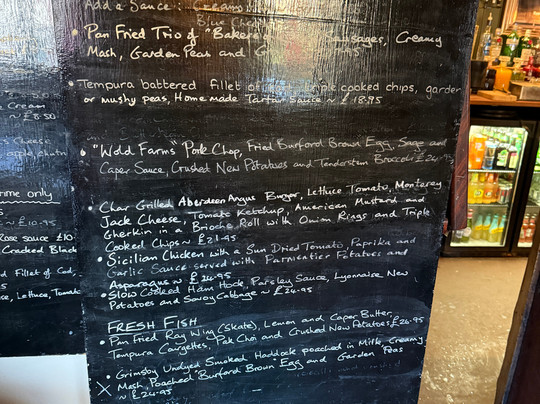 Add a Sauce: Creamy
Blue Cheese
• Pan Fried Trio of "Bakers Sausages, Creamy
Mash, Garden Peas and
• Tempura battered fillet of triple cooked chips, garden
or mushy peas, Home made Tartar Sauce ~ £18.95
• "Wold Farms" Pork Chop, Fried Burford Brown Egg, Sage and
Caper Sauce, Crushed New Potatoes and Tenderstem Broccoli £24.95
• Char Grilled Aberdeen Angus Burger, Lettuce Tomato, Monterey
Jack Cheese, Tomato Ketchup, American Mustard and
Gherkin in a Brioche Roll with Onion Rings and Triple
Cooked Chips ~ £21.95
• Sicilian Chicken with a Sun Dried Tomato, Paprika and
Garlic Sauce served with Parmentier Potatoes and
Asparagus ~ £24.95
• Slow Cooked Ham Hock, Parsley Sauce, Lyonnaise New
Potatoes and Savoy Cabbage ~ £24.95
FRESH FISH
• Pan Fried Ray Wing (Skate), Lemon and Caper Butter,
Tempura Courgettes, Pak Choi and Crushed New Potatoes £26.95
• Grimsby Undyed Smoked Haddock poached in Milk, Creamy
X Mash, Poached Burford Brown Egg and Garden Peas
~ £24.95
Cream
~ £8.50
apple chutn
time only
~ £10.95
Rose sauce £10
Cracked Black
d Fillet of Cod,
se, Lettuce, Tomato